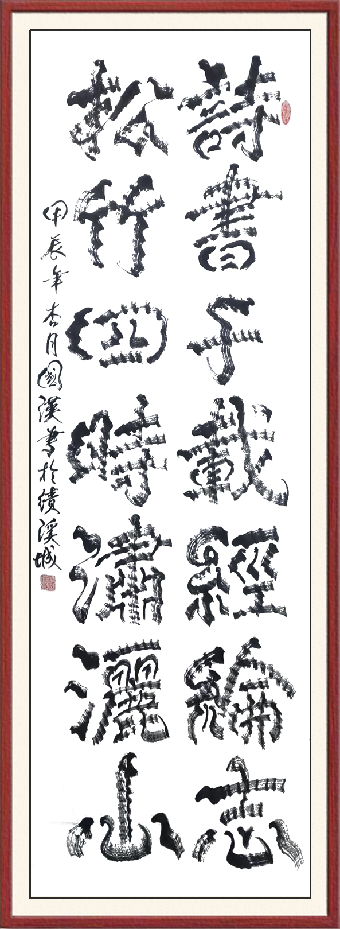 詩書千載經綸志
松竹四時瀟灑心
甲辰年杏月國漢書於績溪城